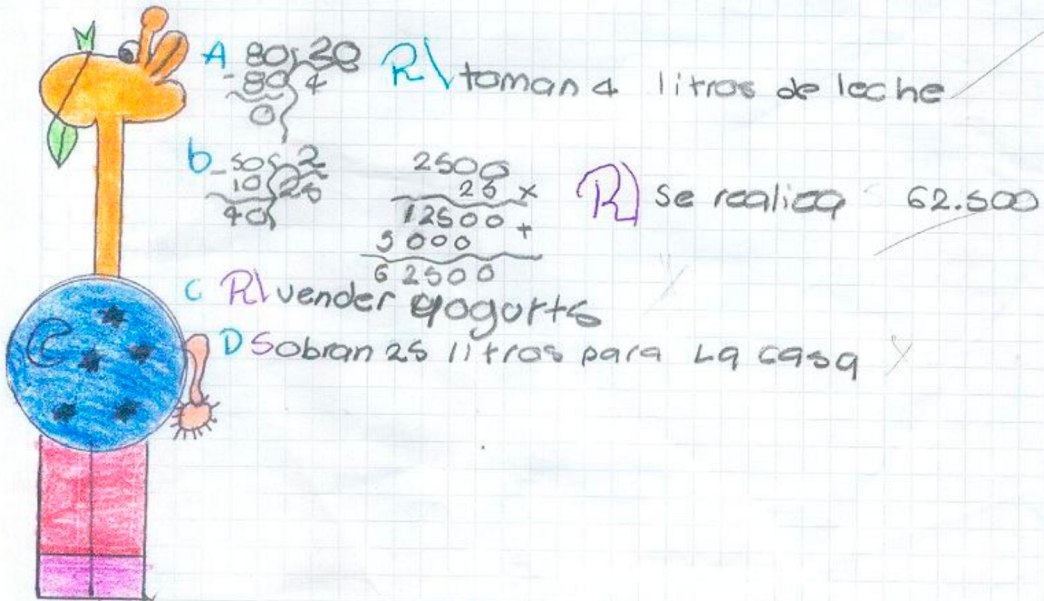 A 80 20
- 80 4
0
R\ toman 4 litros de leche
b - 50 2
10 25
40
2500
25 x
12500 +
5000
62500
R) Se realiza 62.500
C R\ vender yogurts
D Sobran 25 litros para La casa